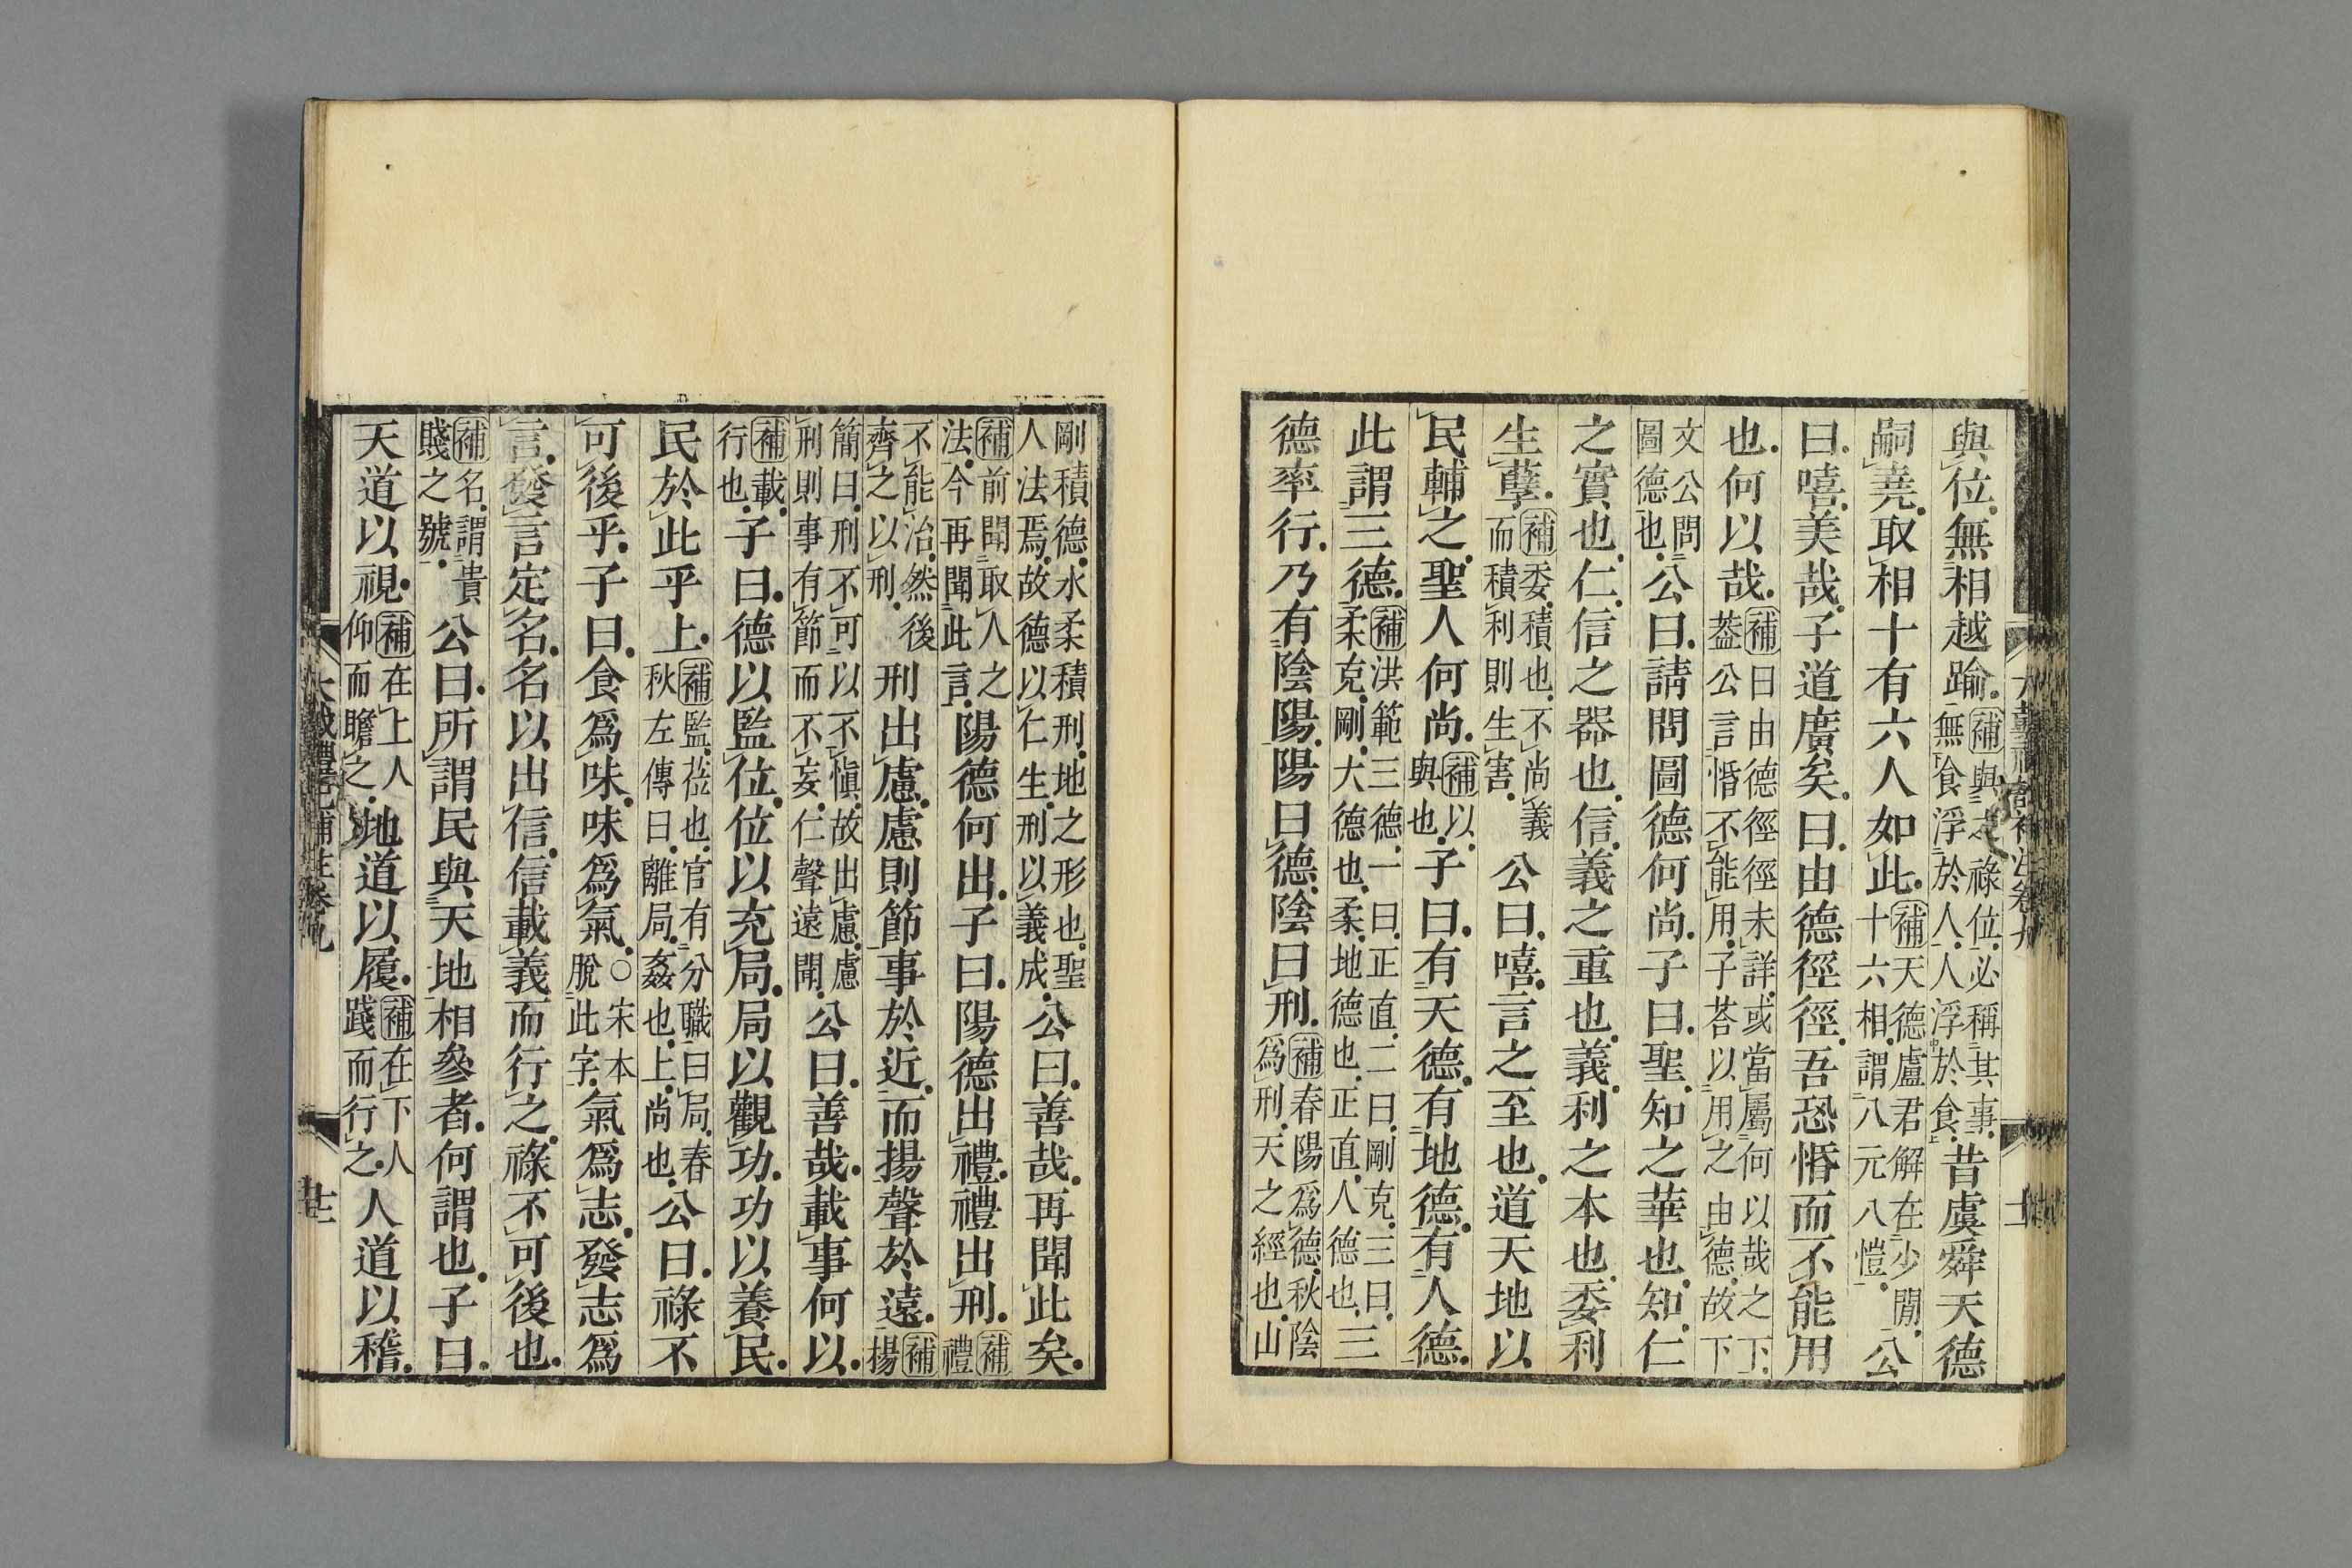 與位無相越踰補與之祿位必稱其事無食浮於人人浮於食昔虞舜天德
嗣堯取相十有六人如此補天德盧君解在少閒十六相謂八元八愷公
曰嘻美哉子道廣矣曰由德徑徑吾恐惛而不能用
也何以哉補曰由德徑徑未詳或當屬何以哉之下葢公言惛不能用子荅以用之由德故下
文公問圖德也公曰請問圖德何尚子曰聖知之華也知仁
之實也仁信之器也信義之重也義利之本也委利
生孽補委積也不尚義而積利則生害公曰嘻言之至也道天地以
民輔之聖人何尚補以與也子曰有天德有地德有人德
此謂三德補洪範三德一曰正直二曰剛克三曰柔克剛大德也柔地德也正直人德也三
德率行乃有陰陽陽曰德陰曰刑補春陽爲德秋陰爲刑天之經也山
剛積德水柔積刑地之形也聖人法焉故德以仁生刑以義成公曰善哉再聞此矣
補前聞取人之法今再聞此言陽德何出子曰陽德出禮禮出刑補禮
不能治然後齊之以刑刑出慮慮則節事於近而揚聲於遠補揚
簡曰刑不可以不愼故出慮慮刑則事有節而不妄仁聲遠聞公曰善哉載事何以
補載行也子曰德以監位位以充局局以觀功功以養民
民於此乎上補監莅也官有分職曰局春秋左傳曰離局姦也上尚也公曰祿不
可後乎子曰食爲味味爲氣○宋本脫此字氣爲志發志爲
言發言定名名以出信信載義而行之祿不可後也
補名謂貴賤之號公曰所謂民與天地相參者何謂也子曰
天道以視補在上人仰而瞻之地道以履補在下人踐而行之人道以稽